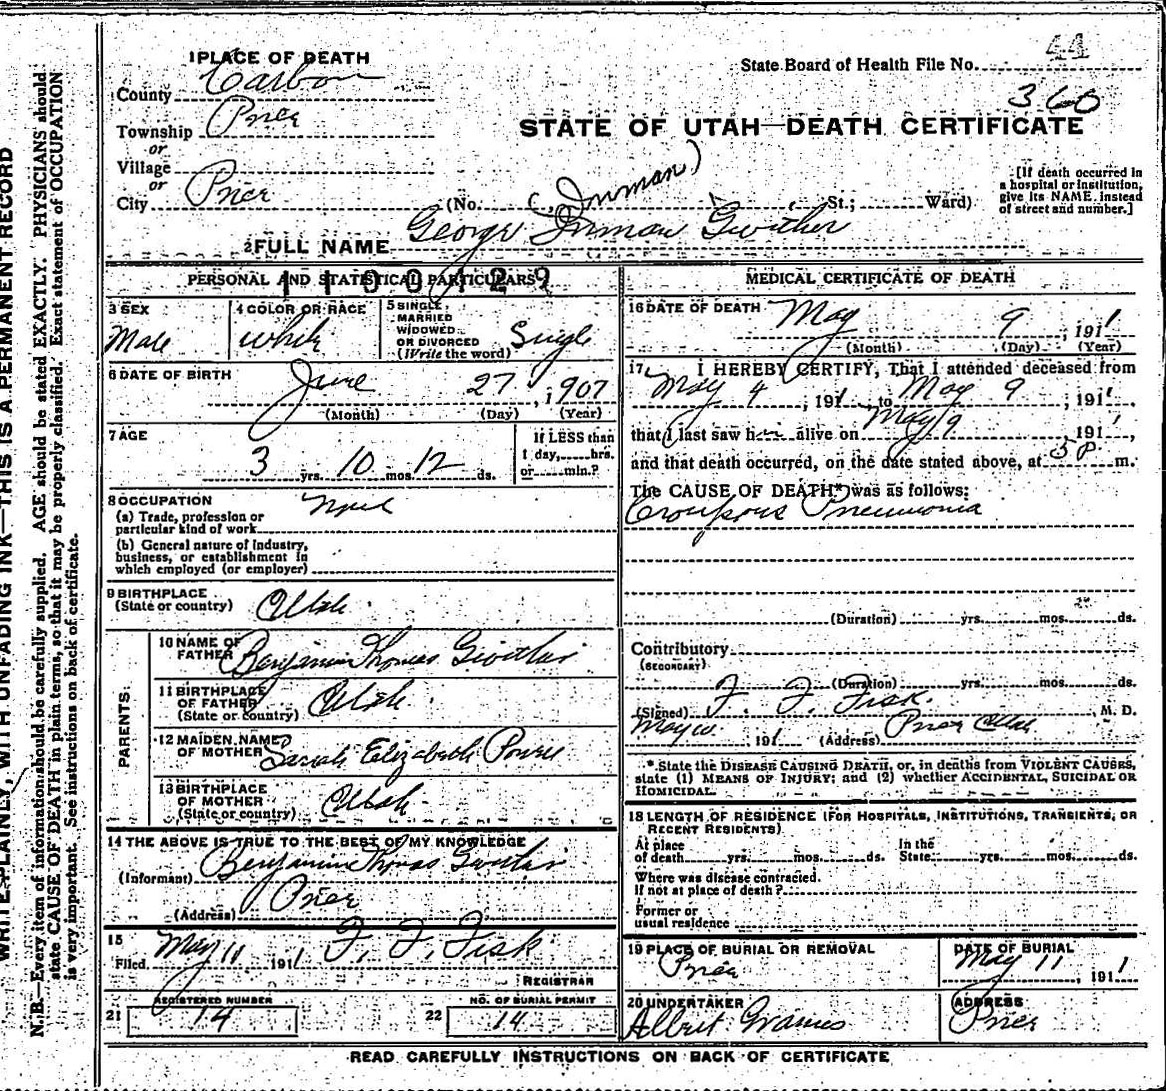 44
1 PLACE OF DEATH
State Board of Health File No.
County Carbon
360
Township Price
or
STATE OF UTAH—DEATH CERTIFICATE
Village
or
City Price
(No. (Inman) St.; Ward)
[If death occurred in
a hospital or institution,
give its NAME instead
of street and number.]
2 FULL NAME George Inman Gwither
PERSONAL AND STATISTICAL PARTICULARS
3 SEX
Male
4 COLOR OR RACE
White
5 SINGLE,
MARRIED
WIDOWED
OR DIVORCED
(Write the word) Single
6 DATE OF BIRTH
June 27, 1907
(Month) (Day) (Year)
7 AGE
3 yrs. 10 mos. 12 ds.
If LESS than
1 day, hrs.
or min.?
8 OCCUPATION
(a) Trade, profession or
particular kind of work
(b) General nature of industry,
business, or establishment in
which employed (or employer)
9 BIRTHPLACE
(State or country) Utah.
PARENTS.
10 NAME OF
FATHER Benjamin Thomas Gwither
11 BIRTHPLACE
OF FATHER
(State or country) Utah.
12 MAIDEN NAME
OF MOTHER Sariah Elizabeth
13 BIRTHPLACE
OF MOTHER
(State or country) Utah.
14 THE ABOVE IS TRUE TO THE BEST OF MY KNOWLEDGE
(Informant) Benjamin Thomas Gwither
(Address) Price
15
Filed May 11 1911 F. F. Fisk
REGISTRAR
REGISTERED NUMBER
21 14
NO. OF BURIAL PERMIT
22 14
MEDICAL CERTIFICATE OF DEATH
16 DATE OF DEATH May 9, 1911
(Month) (Day) (Year)
17 I HEREBY CERTIFY, That I attended deceased from
May 4, 1911, to May 9, 1911,
that I last saw h alive on May 9, 1911,
and that death occurred, on the date stated above, at 5 P m.
The CAUSE OF DEATH* was as follows:
Croupous Pneumonia
(Duration) yrs. mos. ds.
Contributory
(SECONDARY)
(Duration) yrs. mos. ds.
(Signed) F. F. Fisk., M. D.
May 10. 191 (Address) Price Utah
*State the DISEASE CAUSING DEATH, or, in deaths from VIOLENT CAUSES,
state (1) MEANS OF INJURY; and (2) whether ACCIDENTAL, SUICIDAL OR
HOMICIDAL.
18 LENGTH OF RESIDENCE (FOR HOSPITALS, INSTITUTIONS, TRANSIENTS, OR
RECENT RESIDENTS)
At place
of death yrs. mos. ds.
In the
State yrs. mos. ds.
Where was disease contracted.
If not at place of death?
Former or
usual residence
19 PLACE OF BURIAL OR REMOVAL
Price
DATE OF BURIAL
May 11, 1911
20 UNDERTAKER
Albert Grames
ADDRESS
Price
READ CAREFULLY INSTRUCTIONS ON BACK OF CERTIFICATE
WRITE PLAINLY, WITH UNFADING INK—THIS IS A PERMANENT RECORD
N. B.—Every item of information should be carefully supplied. AGE should be stated EXACTLY. PHYSICIANS should
state CAUSE OF DEATH in plain terms, so that it may be properly classified. Exact statement of OCCUPATION
is very important. See instructions on back of certificate.